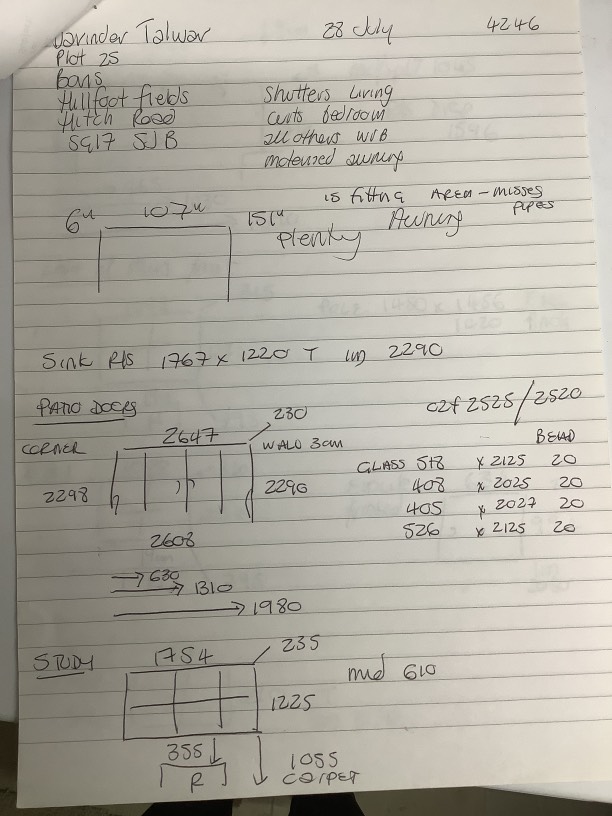 Davinder Talwar 28 July 4246
Plot 25
Hillfoot fields Shutters Living
Hitch Road curts bedroom
SG17 5JB all others W/B
motorized awning
is fitting AREA - misses
pipes
6" 107" 151" Plenty Awning
Sink R/S 1767 x 1220 T 2290
PATIO DOORS c2f 2525/2520
230
CORNER 2647 WALL 3cm BEAD
GLASS 518 x 2125 20
2298 2290 408 x 2025 20
405 x 2027 20
526 x 2125 20
2608
630
1310
1980
STUDY 1754 235
mid 610
1225
355 1055
R CARPET